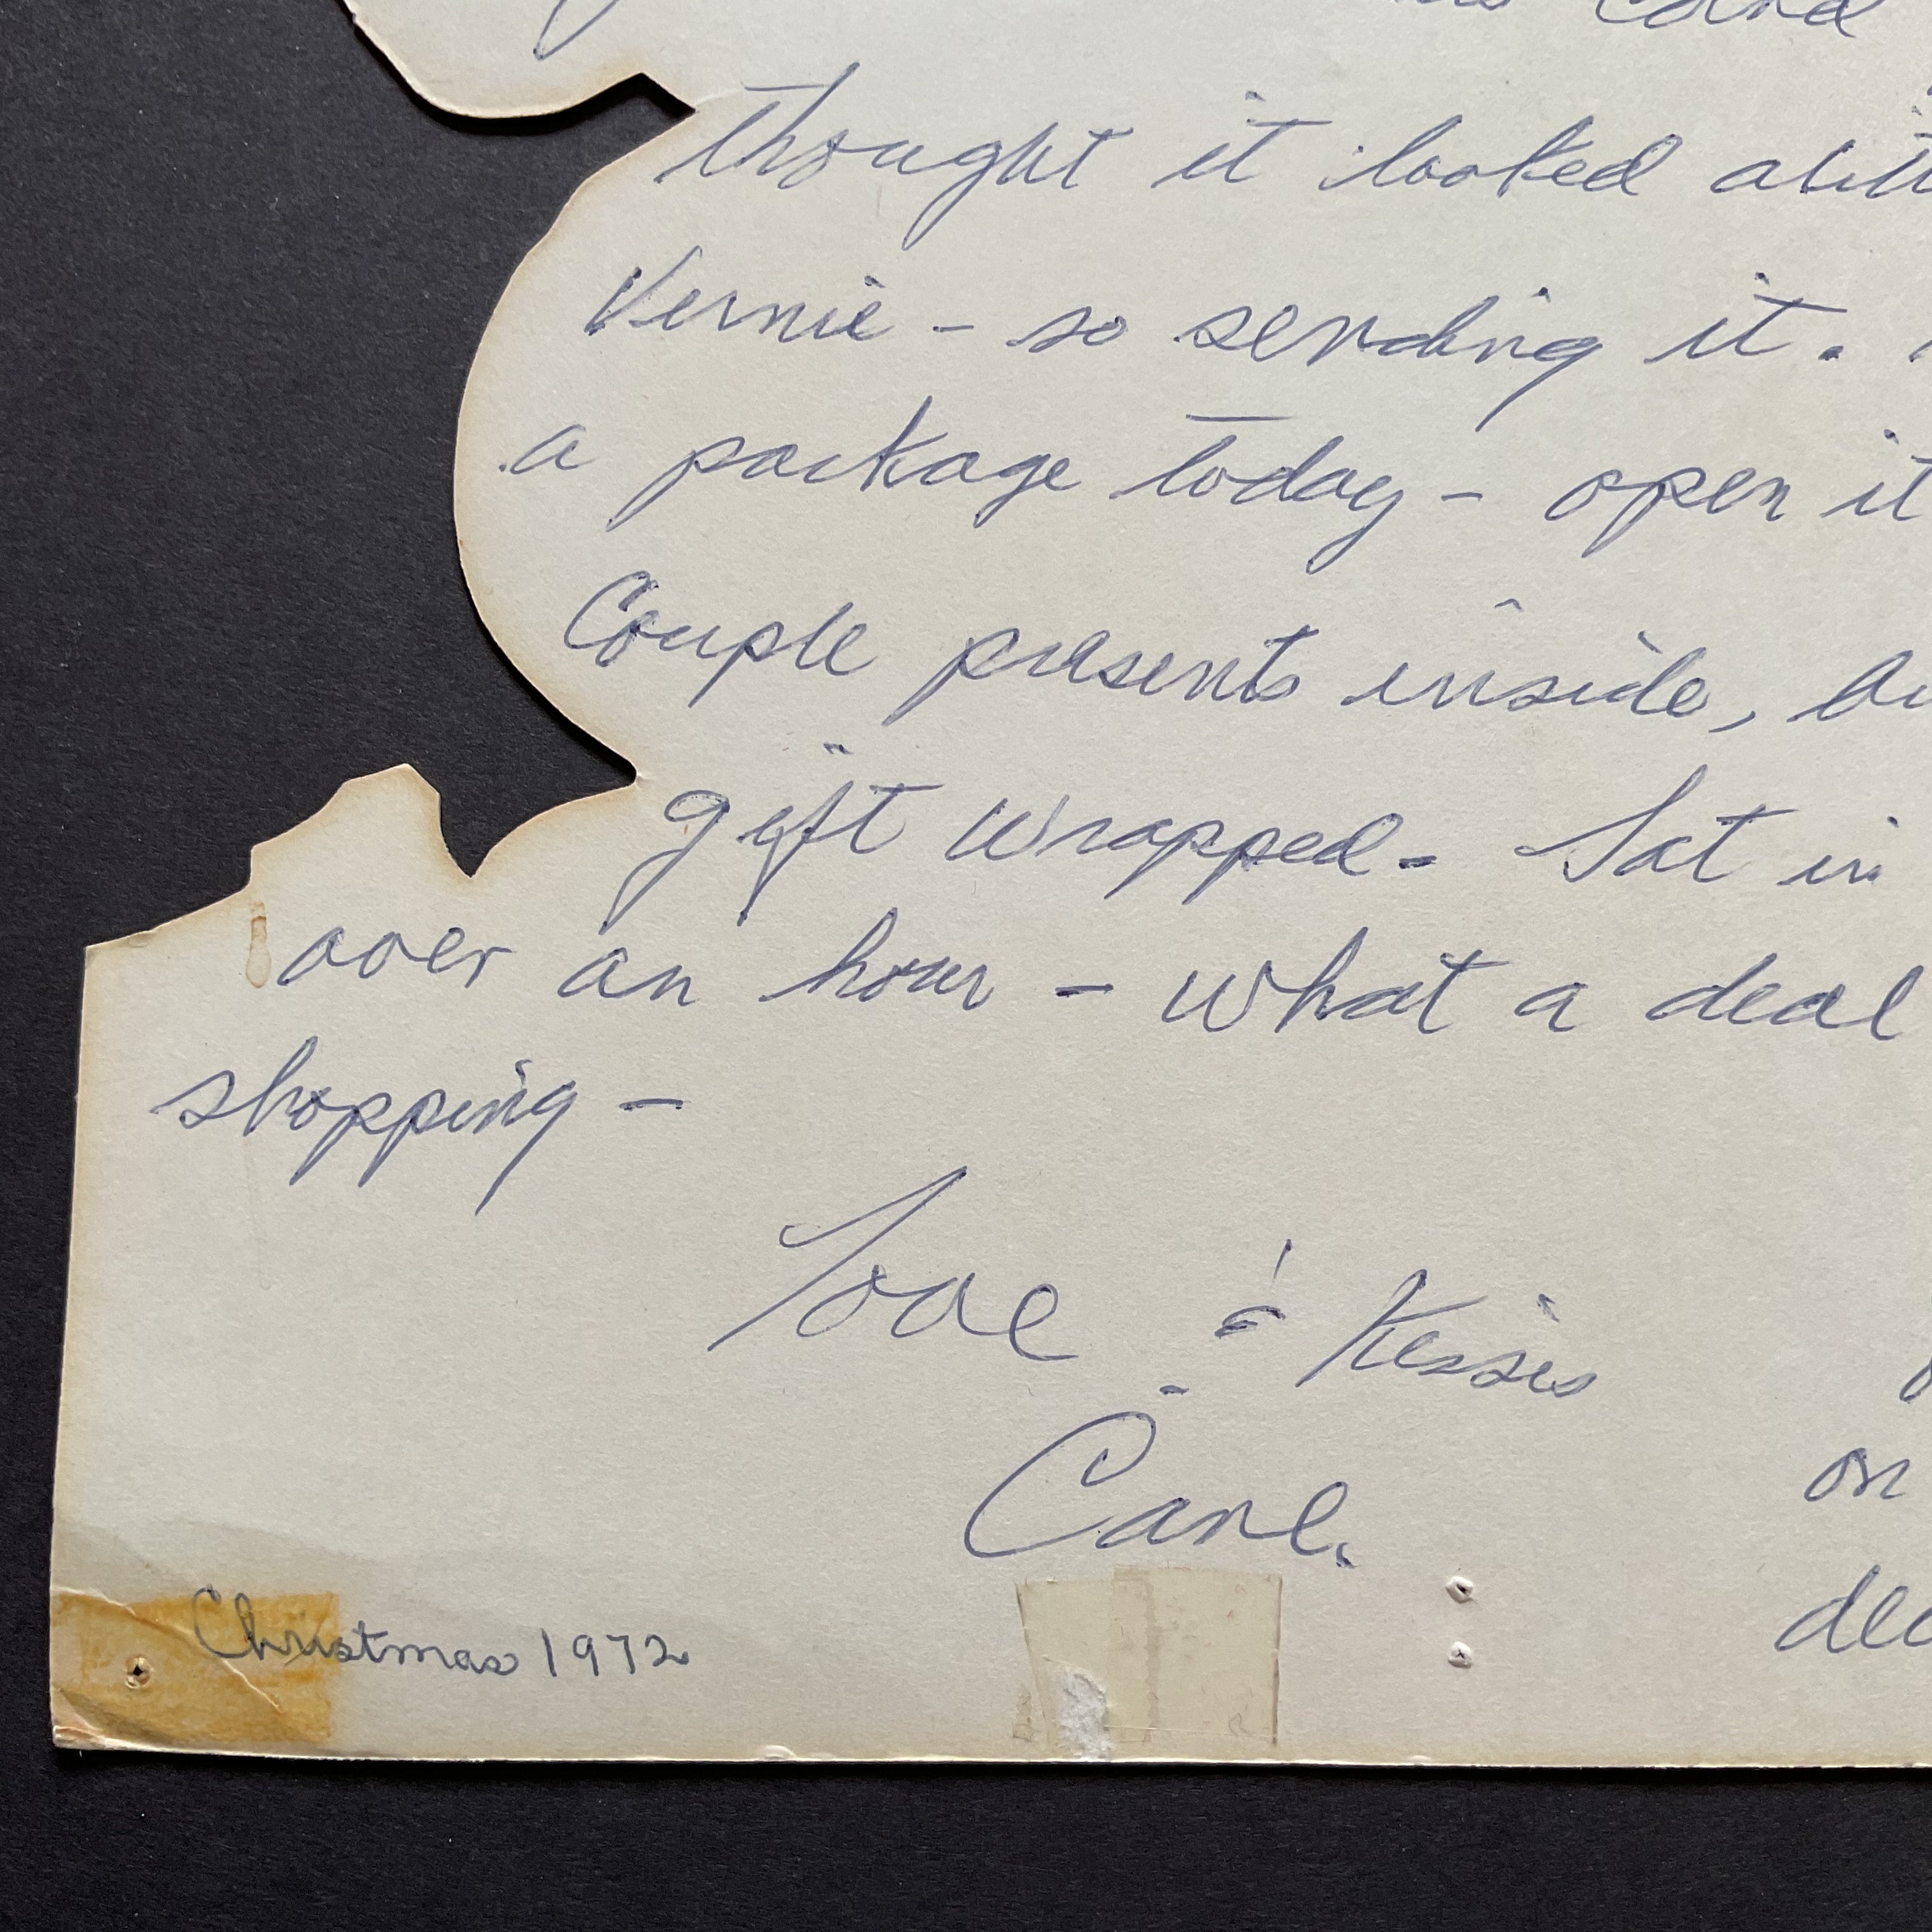 card
thought it looked
Vernie - so sending it.
a package today - open it
Couple presents inside,
gift wrapped - Sat in
over an hour - what a deal
shopping -
Love & Kisses
Carl.
on
Christmas 1972